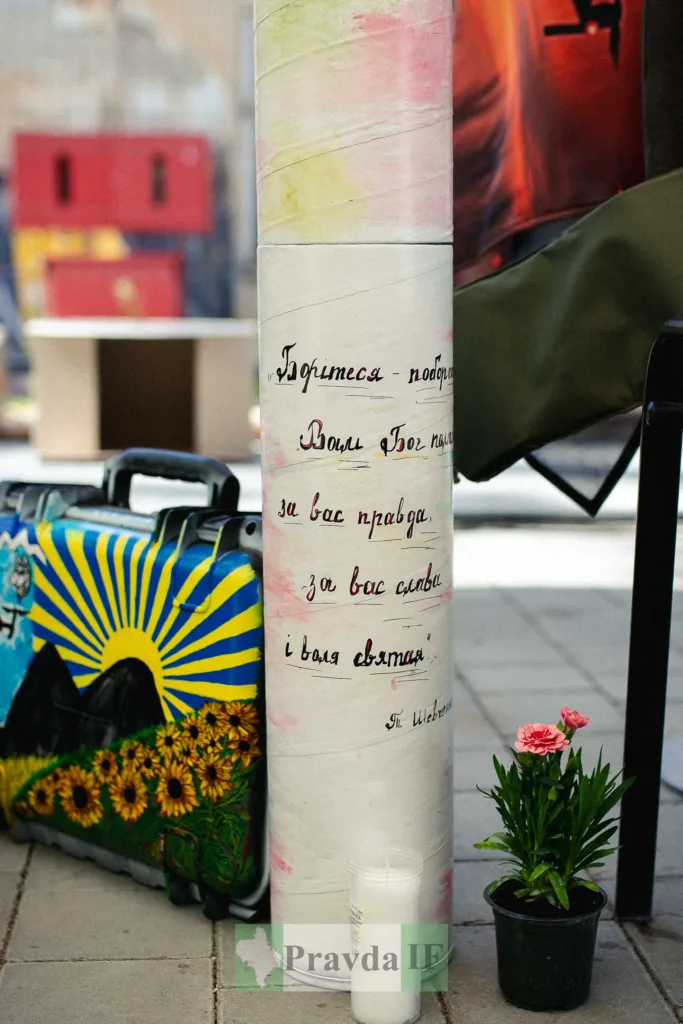 „Борітеся - поборе
Вам Бог пом
за вас правда,
за вас слава
і воля святая".
Т. Шевчен
Pravda IF